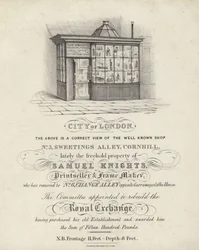 CITY OF LONDON.
THE ABOVE IS A CORRECT VIEW OF THE WELL KNOWN SHOP
No. 3, SWEETINGS ALLEY, CORNHILL,
lately the freehold property of
SAMUEL KNIGHTS,
Printseller & Frame Maker,
who has removed to
The Committee appointed to rebuild the
Royal Exchange
having purchased his old Establishment and awarded him
the Sum of Fifteen Hundred Pounds.
N.B. Frontage 11. Feet - Depth 6 Feet.